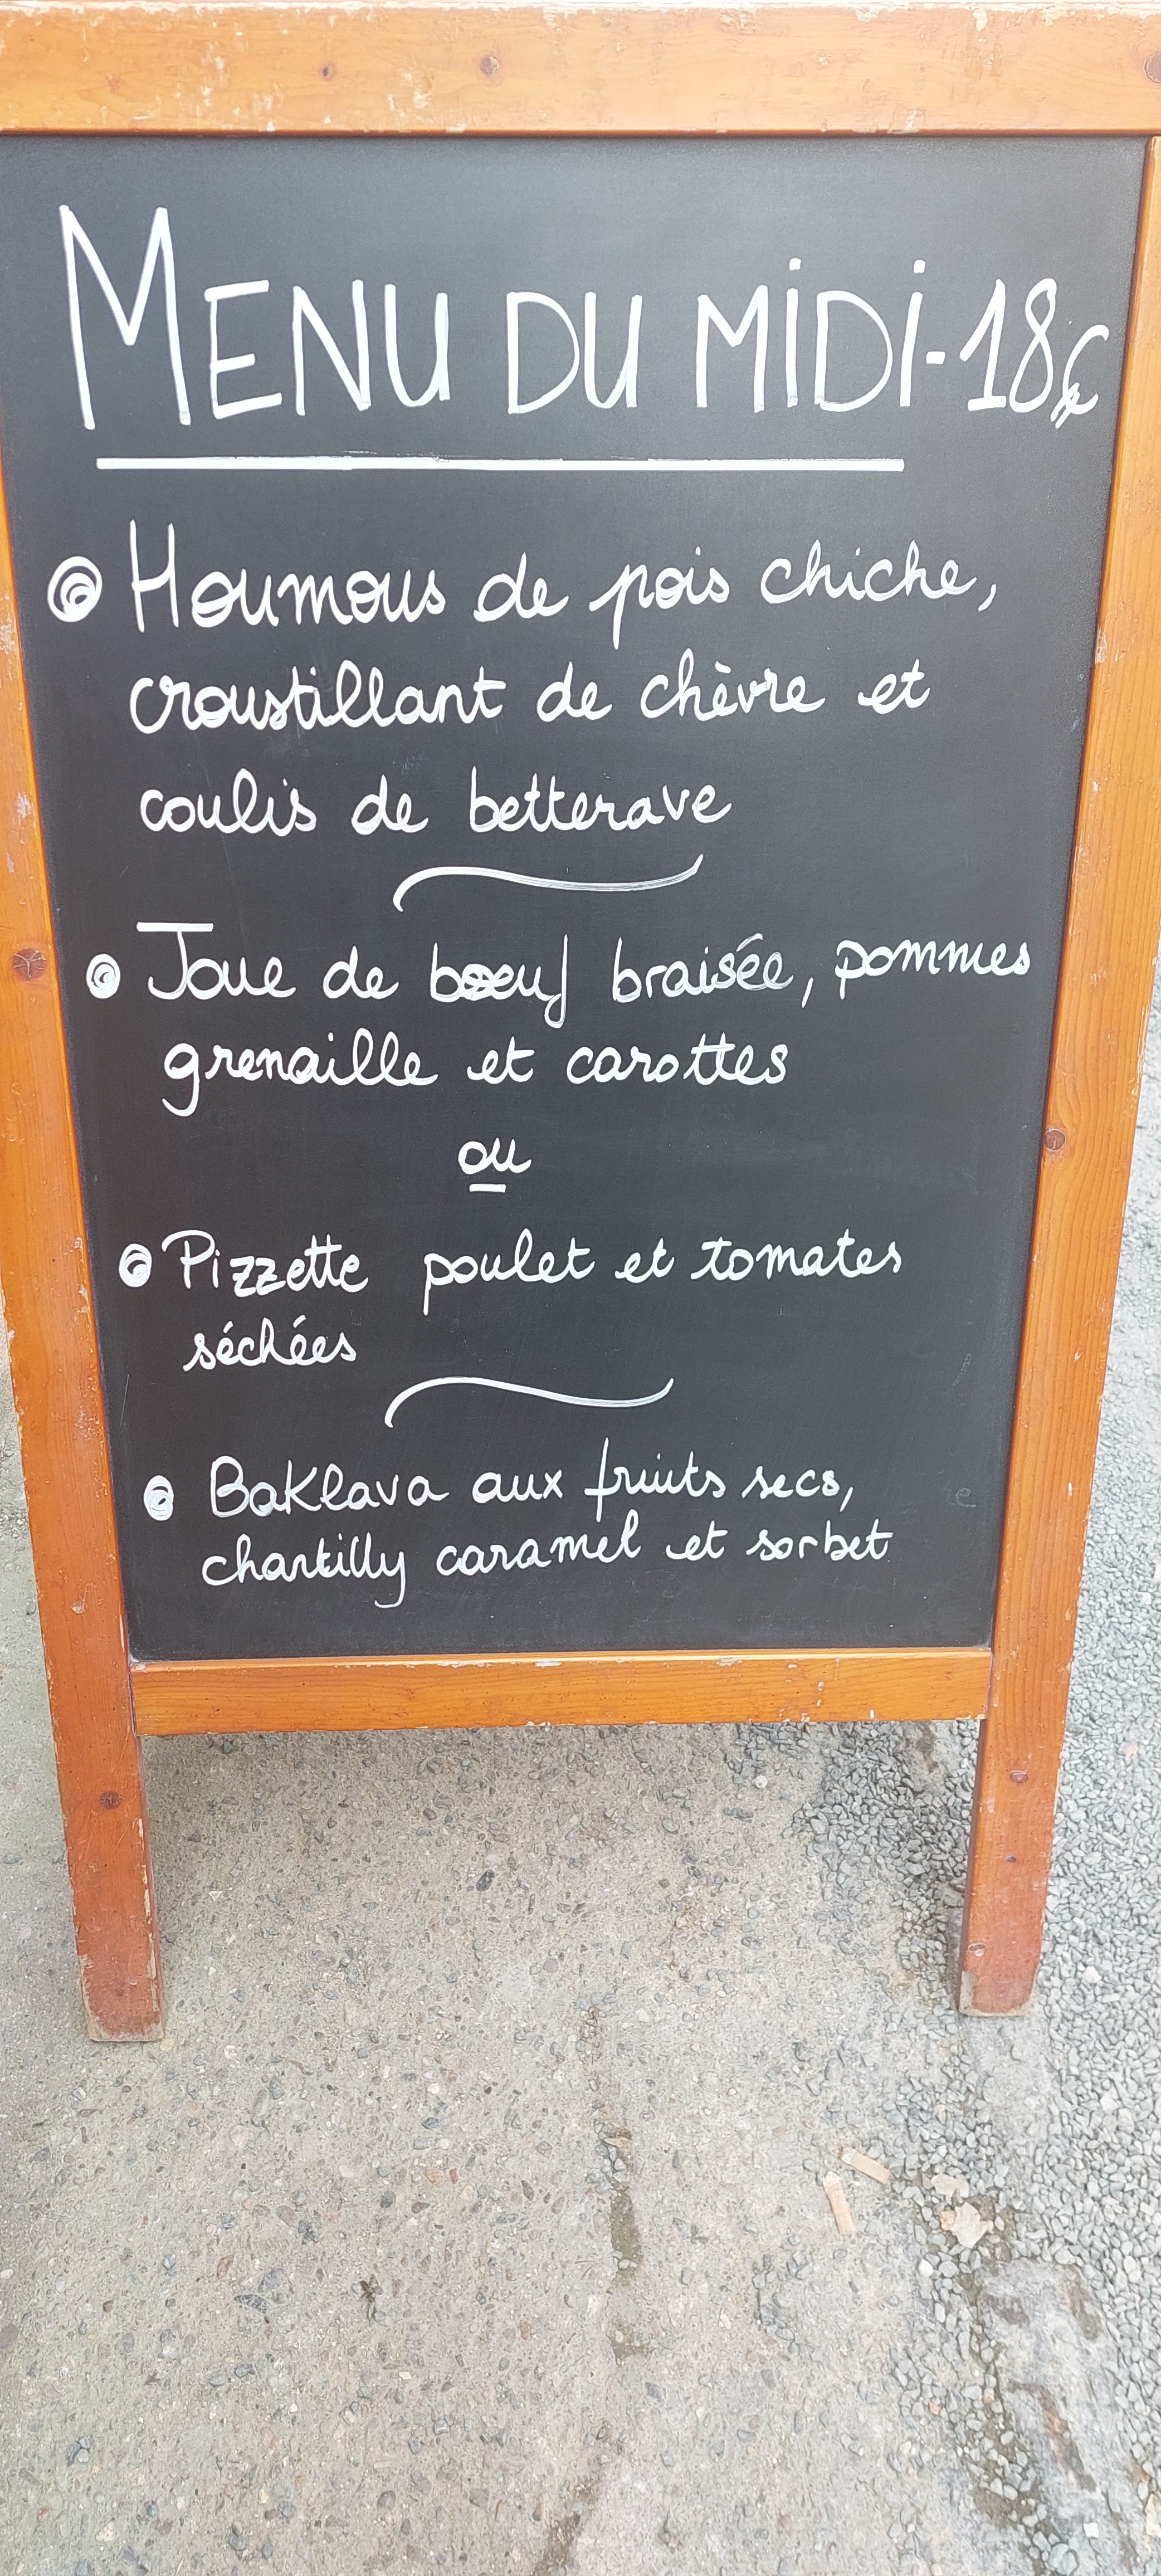 MENU DU MiDi-18€
Houmous de pois chiche,
croustillant de chèvre et
coulis de betterave
Joue de boeuf braisée, pommes
grenaille et carottes
ou
Pizzette poulet et tomates
séchées
Baklava aux fruits secs,
chantilly caramel et sorbet